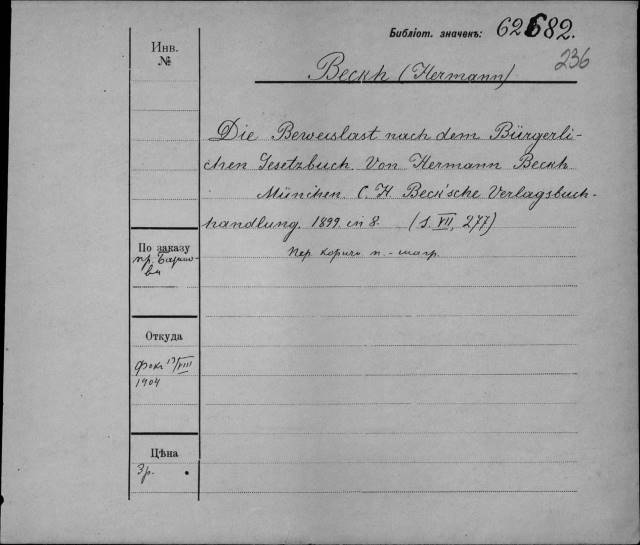 Библіот. значекъ: 62682.
236
Инв.
№
Beckh (Hermann)
Die Beweislast nach dem Bürgerli-
chen Gesetzbuch. Von Hermann Beckh
München. C. H. Beck'sche Verlagsbuch-
handlung. 1899. in 8. (S. VII, 277)
Пер. коричн. п.-шагр.
По заказу
пр.
Откуда
Фокъ 17/VIII
1904
Цѣна
3р.